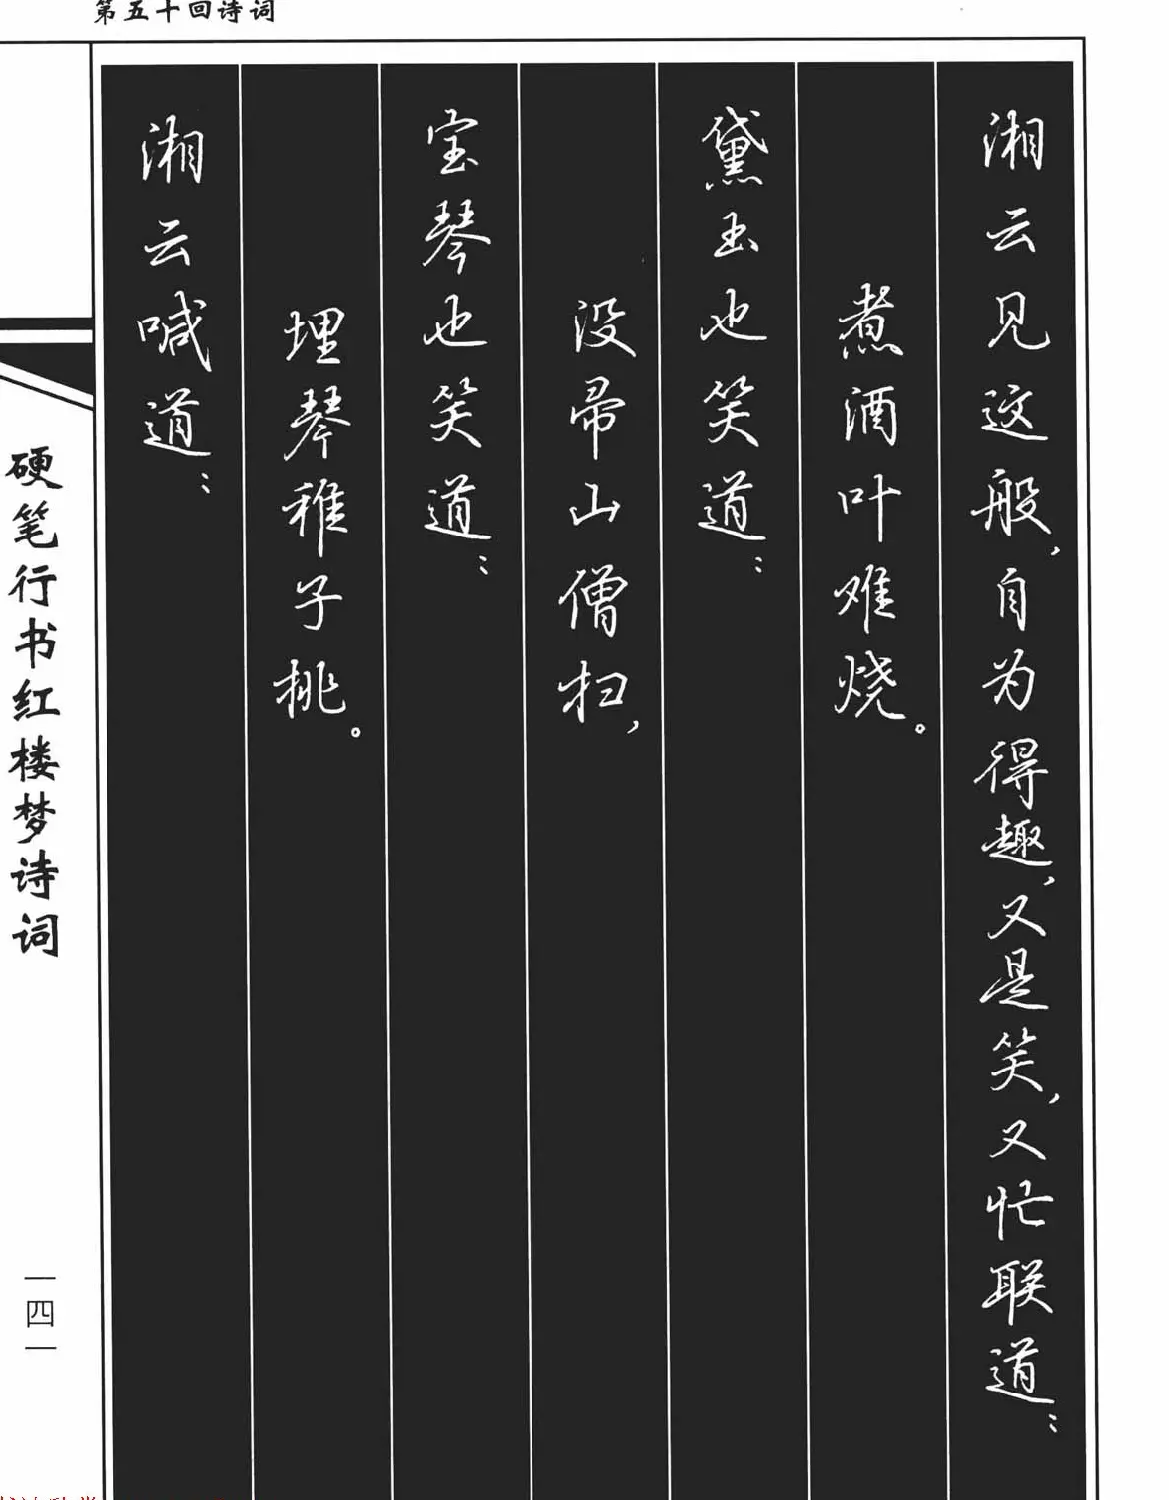 第五十回诗词
湘云见这般，自为得趣，又是笑，又忙联道：
煮酒叶难烧。
黛玉也笑道：
没帚山僧扫，
宝琴也笑道：
埋琴稚子挑。
湘云喊道：
硬笔行书红楼梦诗词
一四一